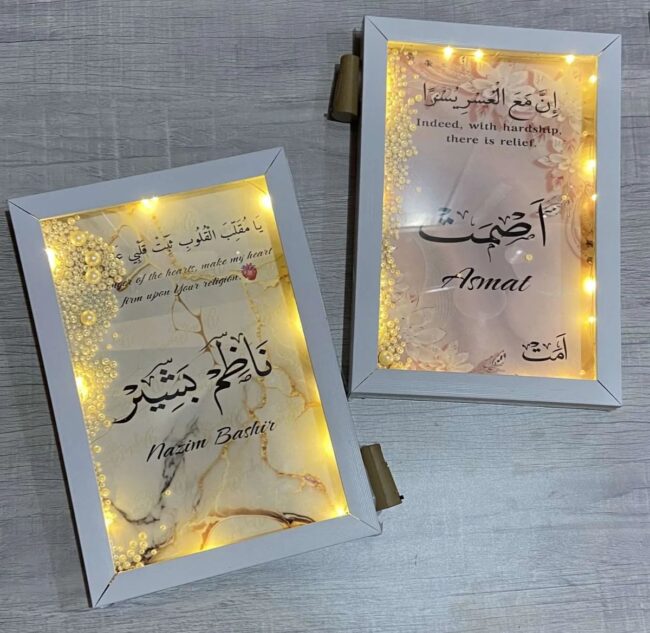 يَا مُقَلِّبَ الْقُلُوبِ ثَبِّتْ قَلْبِي
of the hearts, make my heart
firm upon Your religion.
نَاظِمْ بَشِيْر
Nazim Bashir
إِنَّ مَعَ الْعُسْرِ يُسْرًا
Indeed, with hardship,
there is relief.
اَصْمَت
Asmat
اَمَتْ